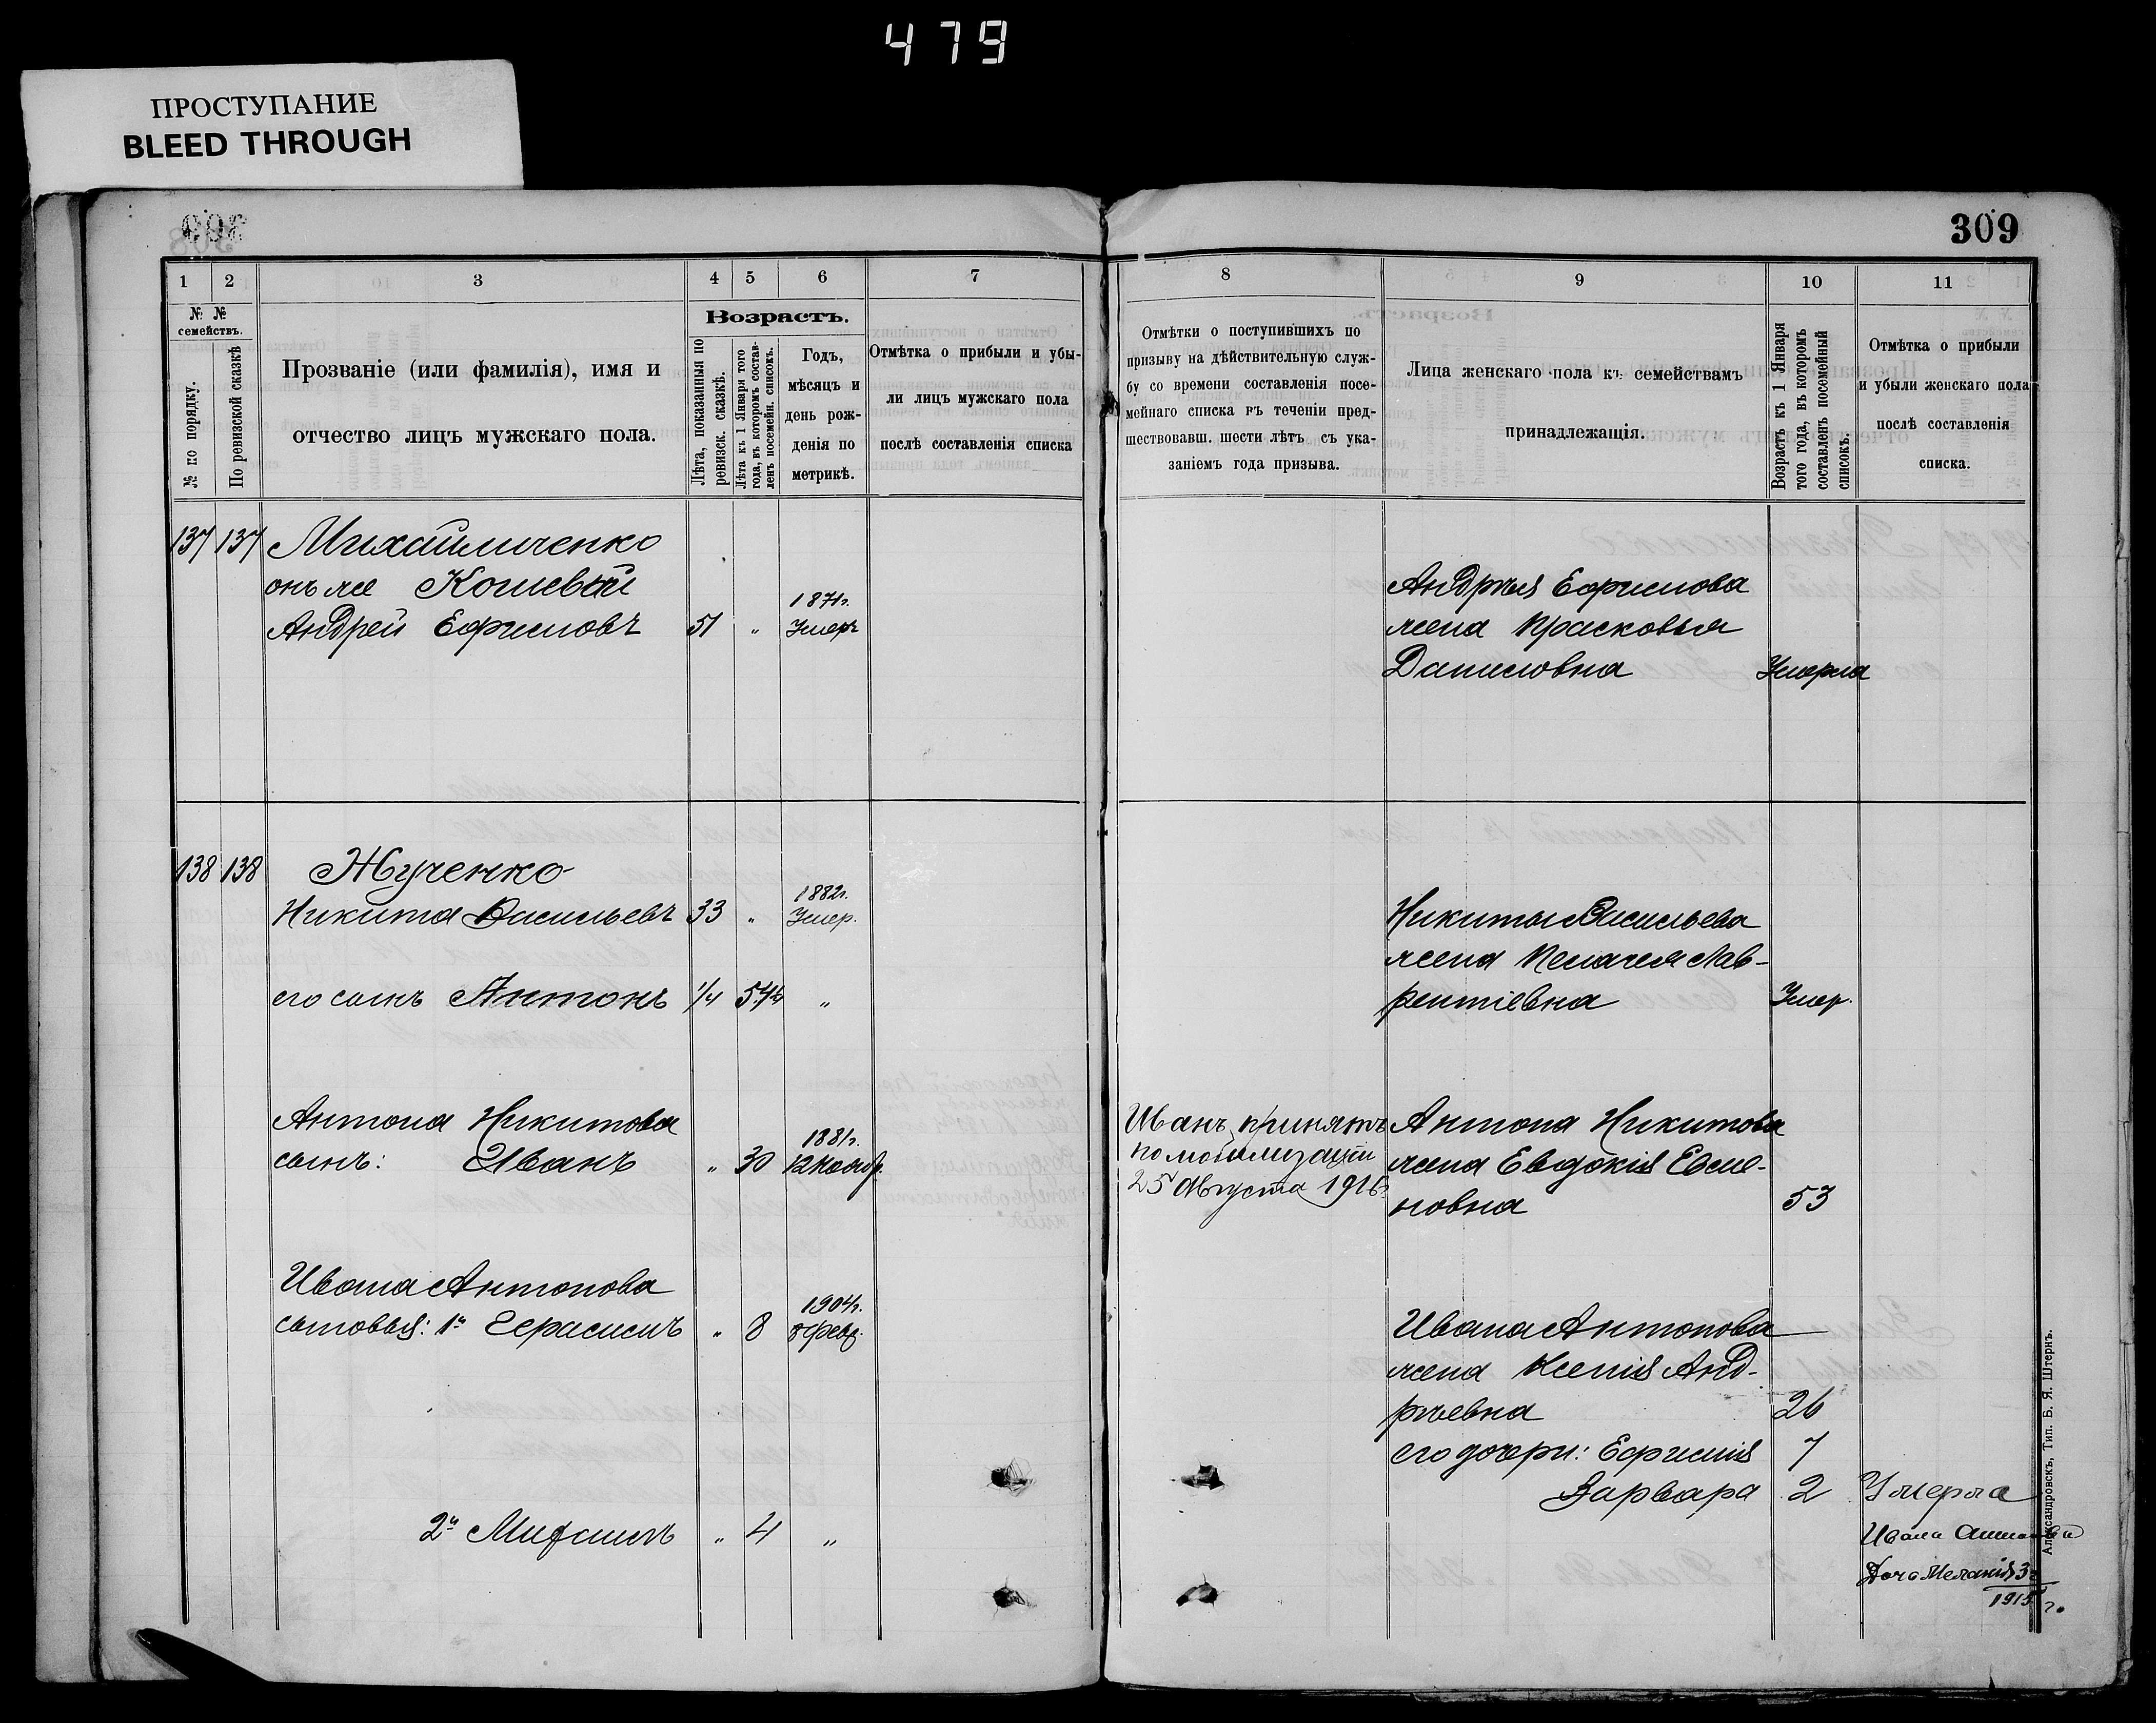 479
ПРОСТУПАНИЕ
BLEED THROUGH
309
1 2 3 4 5 6 7
№ № семействъ.
№ по порядку.
По ревизской сказкѣ
Прозваніе (или фамилія), имя и
отчество лицъ мужскаго пола.
Возрастъ.
Лѣта, показанныя по
ревизск. сказкѣ.
Лѣта къ 1 Января того
года, въ которомъ состав-
ленъ посемейн. списокъ.
Годъ,
мѣсяцъ и
день рож-
денія по
метрикѣ.
Отмѣтка о прибыли и убы-
ли лицъ мужскаго пола
послѣ составленія списка
137 137 Михайличенко
онъ же Кошевый
Андрей Ефимовъ 51 " 1871г. Умеръ
138 138 Жученко
Никита Васильевъ 33 " 1882г. Умер.
его сынъ Антонъ 1/4 54 1/4 "
Антона Никитова
сынъ: Иванъ " 30 1881г. 12 Нояб.
Ивана Антонова
сыновья: 1й Герасимъ " 8 1904г. 8 февр.
2й Михаилъ " 4 "
8 9 10 11
Отмѣтки о поступившихъ по
призыву на дѣйствительную служ-
бу со времени составленія посе-
мейнаго списка въ теченіи пред-
шествовавш. шести лѣтъ съ ука-
заніемъ года призыва.
Лица женскаго пола къ семействамъ
принадлежащія.
Возрастъ къ 1 Января
того года, въ которомъ
составленъ посемейный
списокъ.
Отмѣтка о прибыли
и убыли женскаго пола
послѣ составленія
списка.
Андрея Ефимова
жена Прасковья
Даниловна Умерла
Никиты Васильева
жена Пелагея Лав-
рентіевна Умер.
Иванъ принятъ
по мобилизаціи
25 Августа 1916
Антона Никитова
жена Евдокія Евсе-
новна 53
Ивана Антонова
жена Ксенія Анд-
рѣевна 26
его дочери: Ефимія 7
Варвара 2 Умерла
Ивана
Дочь Меланія 3г
1915 г.
Александровскъ, Тип. Б. Я. Штернъ.